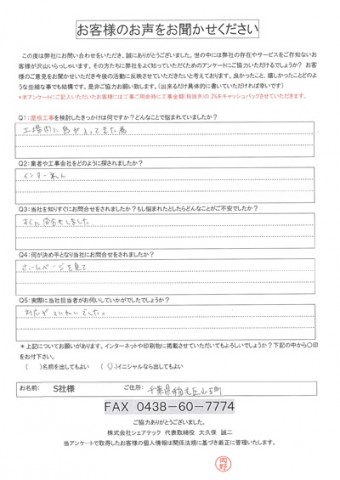 お客様のお声をお聞かせください
この度は弊社にお問い合わせをいただき、誠にありがとうございました。世の中には弊社の存在やサービスをご存知ないお
客様が沢山いらっしゃいます。その方たちに弊社をよく知っていただくためのアンケートにご協力いただけるでしょうか？お客
様のご意見をお聞かせいただき今後の活動に反映させていただきたいと考えております。良かったこと、嬉しかったことどのよ
うな些細な事でも結構です。是非ご協力お願い致します。（出来るだけ具体的に書いていただければ幸いです）
＊本アンケートにご記入いただいたお客様には工事ご契約後に工事金額(税抜き)の2％キャッシュバックさせていただきます。
Q1：是役工事を検討したきっかけは何ですか？どんなことで悩まれていましたか？
工場内に鳥が入ってきた為
Q2：業者や工事会社をどのように探されましたか？
インターネット
Q3：当社を知りすぐにお問合せをされましたか？もし悩まれたとしたらどんなことがご不安でしたか？
すぐに問合せしました
Q4：何が決め手となり当社にお問合せをされましたか？
ホームページを見て
Q5：実際に当社担当者がお伺いしていかがでしたでしょうか？
ていねいでした。
＊上記についてお願いがあります。インターネットや印刷物に掲載させていただいてもよろしいでしょうか？下記の中から〇印
をお付け下さい。
（　）名前を出してもよい　（○）イニシャルなら出してもよい
お名前：　S社様　ご住所：　千葉県
FAX 0438-60-7774
ご協力ありがとうございました。
株式会社シェアテック 代表取締役 大久保 誠二
当アンケートで取得したお客様の個人情報は関係法規に基づき厳正に管理いたします。